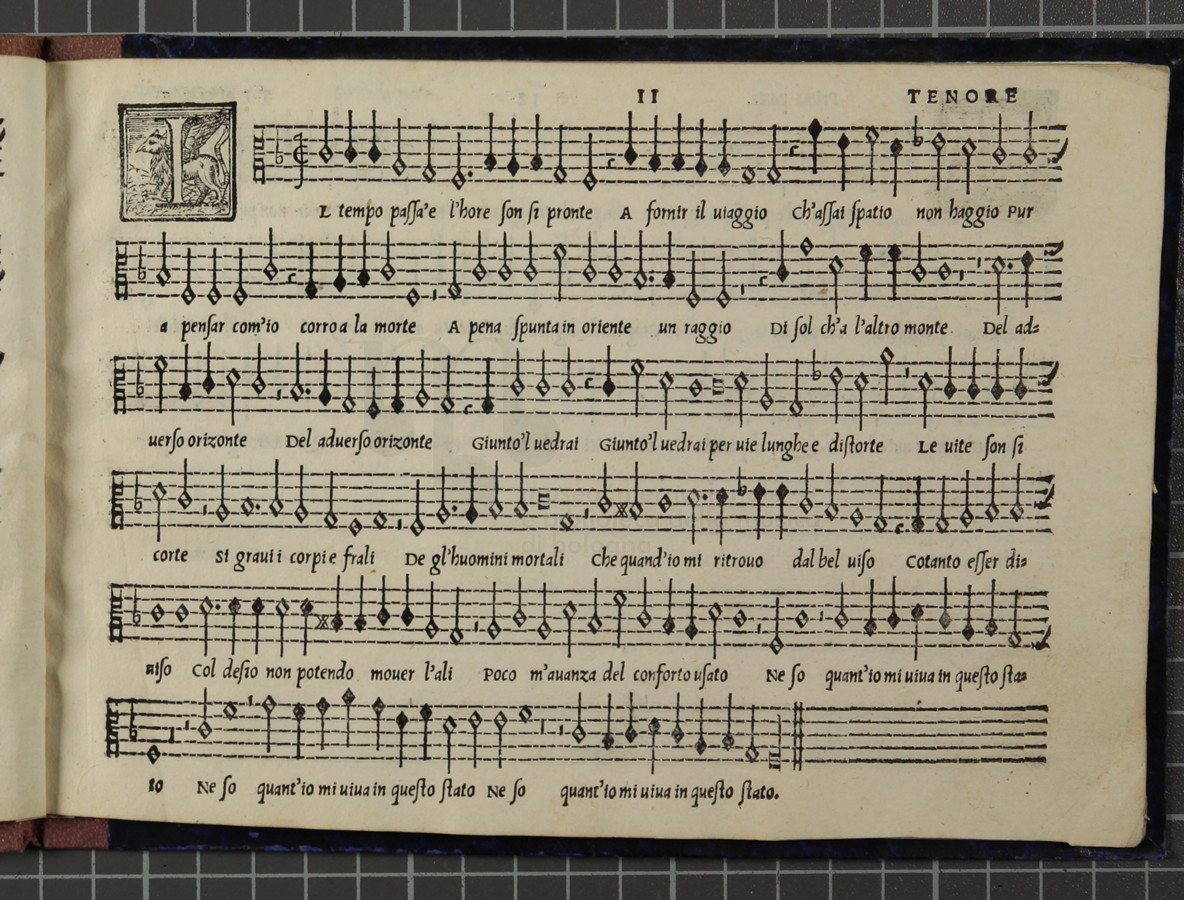 II TENORE
IL tempo passa'e l'hore son si pronte A fornir il uiaggio Ch'assai spatio non haggio Pur
a pensar com'io corro a la morte A pena spunta in oriente un raggio Di sol ch'a l'altro monte Del ad=
uerso orizonte Del aduerso orizonte Giunto'l uedrai Giunto'l uedrai per uie lunghe e distorte Le uite son si
corte Si graui i corpi e frali De gl'huomini mortali Che quand'io mi ritrouo dal bel uiso Cotanto esser di=
uiso Col desio non potendo mouer l'ali Poco m'auanza del conforto usato Ne so quant'io mi uiua in questo sta=
to Ne so quant'io mi uiua in questo stato Ne so quant'io mi uiua in questo stato.